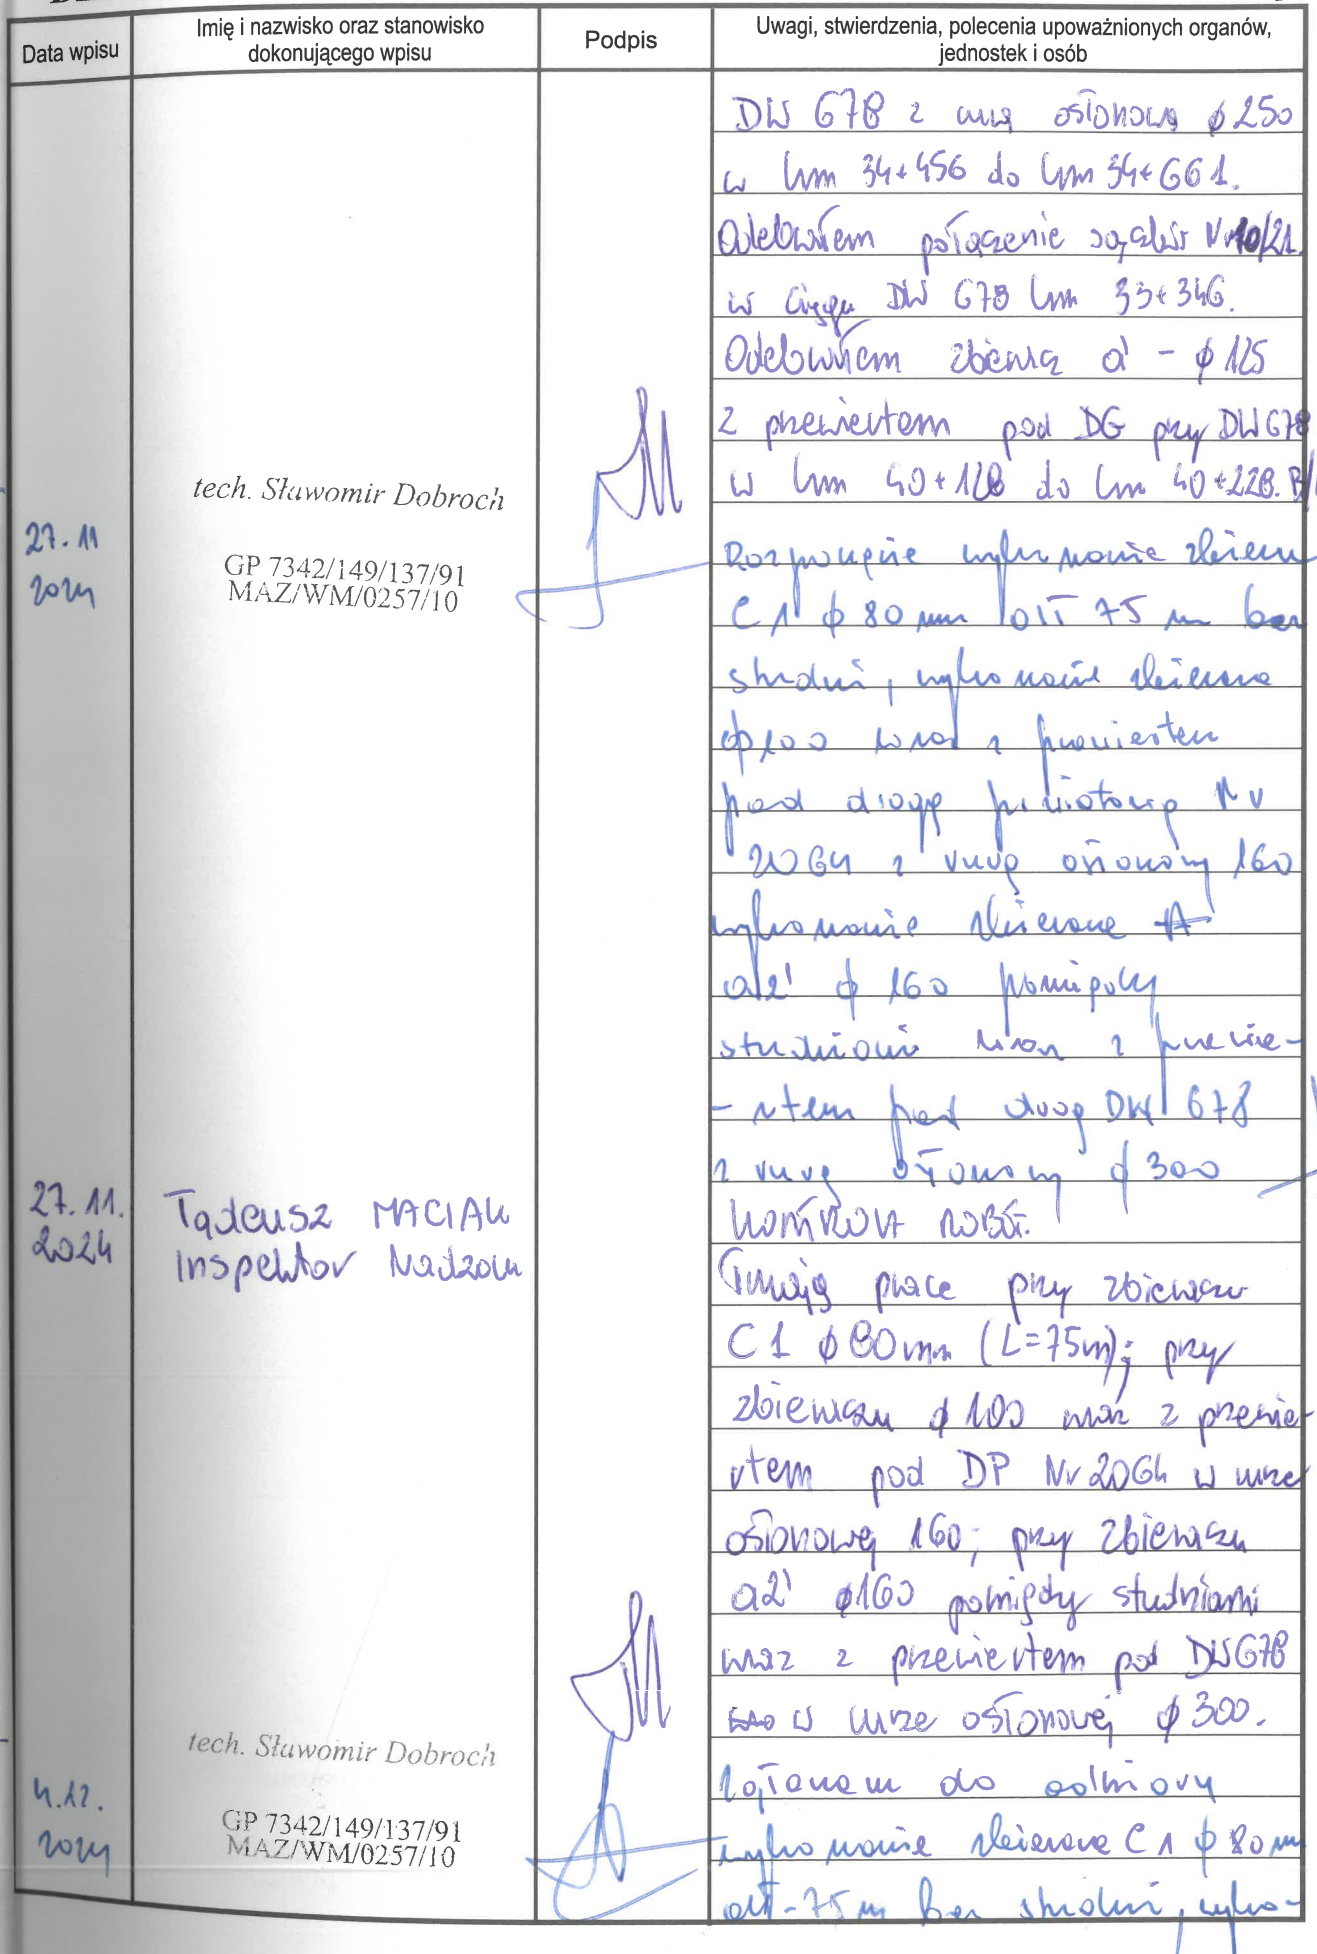 Data wpisu
Imię i nazwisko oraz stanowisko
dokonującego wpisu
Podpis
Uwagi, stwierdzenia, polecenia upoważnionych organów,
jednostek i osób
DW 678 z rurą osłonową ϕ 250
w km 34+456 do km 34+661.
Odebrałem połączenie sączków Nr 10/21.
w ciągu DW 678 km 33+346.
Odebrałem zbieracz a' - ϕ 125
z przewiertem pod DG przy DW 678
w km 40+128 do km 40+228.
27.11
2024
tech. Sławomir Dobroch
GP 7342/149/137/91
MAZ/WM/0257/10
Rozpoczęcie wykonanie zbieracza
C1 ϕ 80 mm 75 m bez
studni, wykonanie zbieracza
ϕ 100 wraz z przewiertem
pod drogę powiatową Nr
2064 z rurą osłonową 160
wykonanie zbieracza A
a2' ϕ 160 pomiędzy
studniami wraz z przewie-
- rtem pod drogą DW 678
z rurą osłonową ϕ 300
27.11.
2024
Tadeusz MACIAK
Inspektor Nadzoru
KONTROLA ROBÓT.
Trwają prace przy zbieraczu
C1 ϕ 80 mm (L=75m); przy
zbieraczu ϕ 100 wraz z przewie-
rtem pod DP Nr 2064 w rurze
osłonowej 160; przy zbieraczu
a2' ϕ160 pomiędzy studniami
wraz z przewiertem pod DW678
w rurze osłonowej ϕ 300.
4.12.
2024
tech. Sławomir Dobroch
GP 7342/149/137/91
MAZ/WM/0257/10
do odbioru
wykonanie zbieracza C1 ϕ 80 mm
75 m bez studni, wyko-